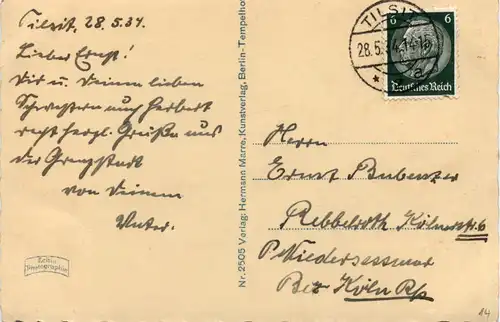 Tilsit, 28.5.34.
Lieber Ernst!
Dir u. Deinen lieben
Schwestern auch Herbert
recht herzl. Grüße aus
der Grenzstadt
von Deinem
Vater.
Echte Photographie
Nr. 2505 Verlag: Hermann Marre, Kunstverlag, Berlin-Tempelhof
TILSIT
28.5.34.14-15
a
6 6
Deutsches Reich
Herrn
Ernst Bubenzer
Rebbelroth Kölnerstr. 6
P. Niedersessmar
Bez. Köln Rh
84